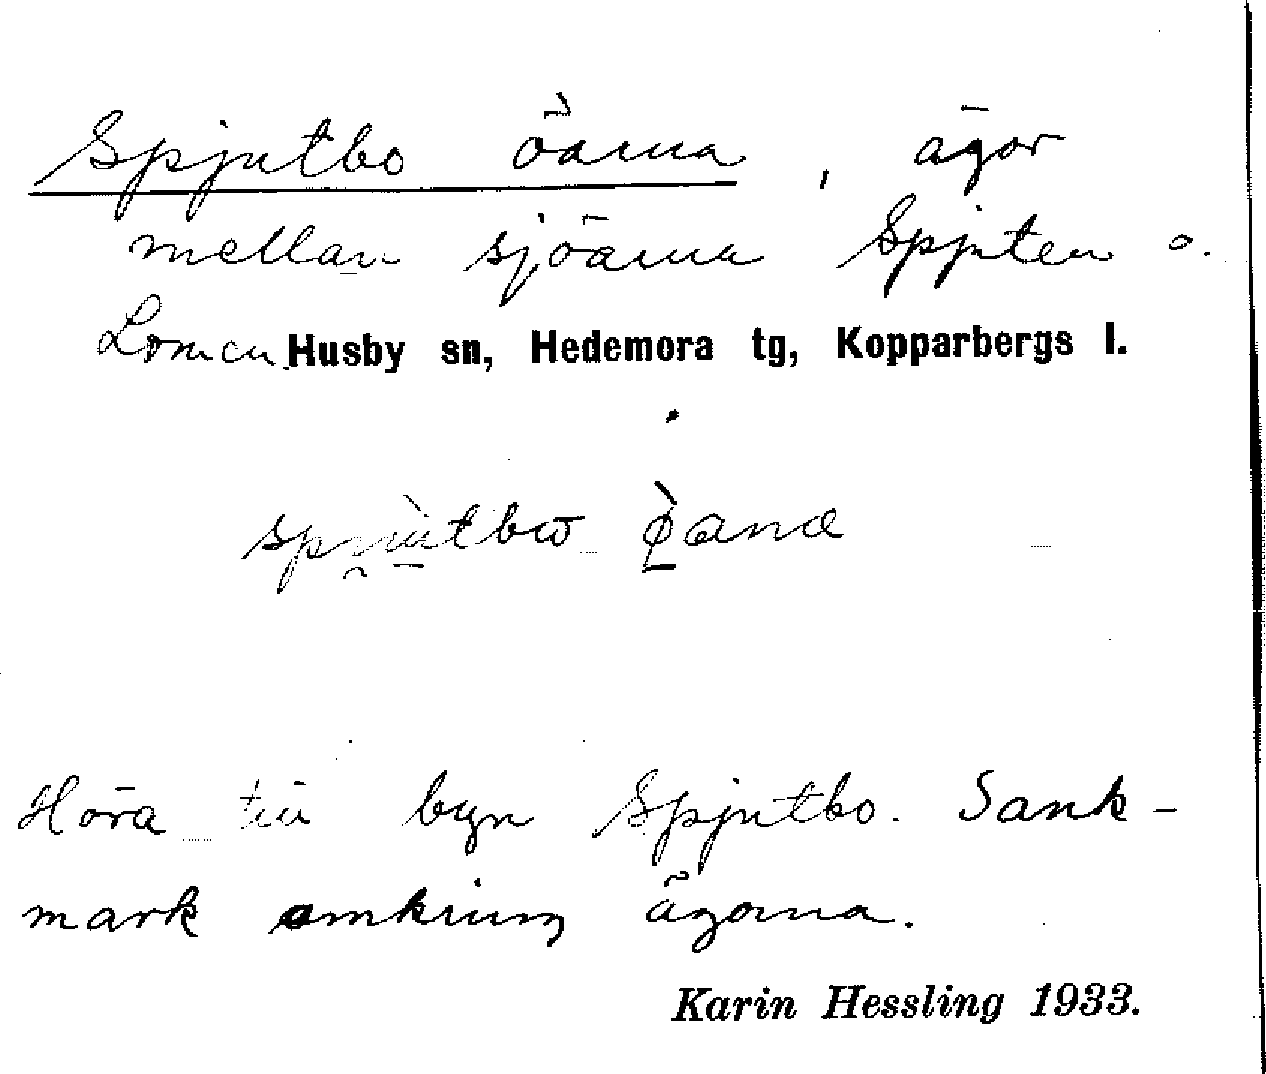 Spjutbo öarna, ägor
mellan sjöarna Spjuten o.
Lomen Husby sn, Hedemora tg, Kopparbergs l.
Höra till byn Spjutbo. Sank-
mark omkring ägorna.
Karin Hessling 1933.